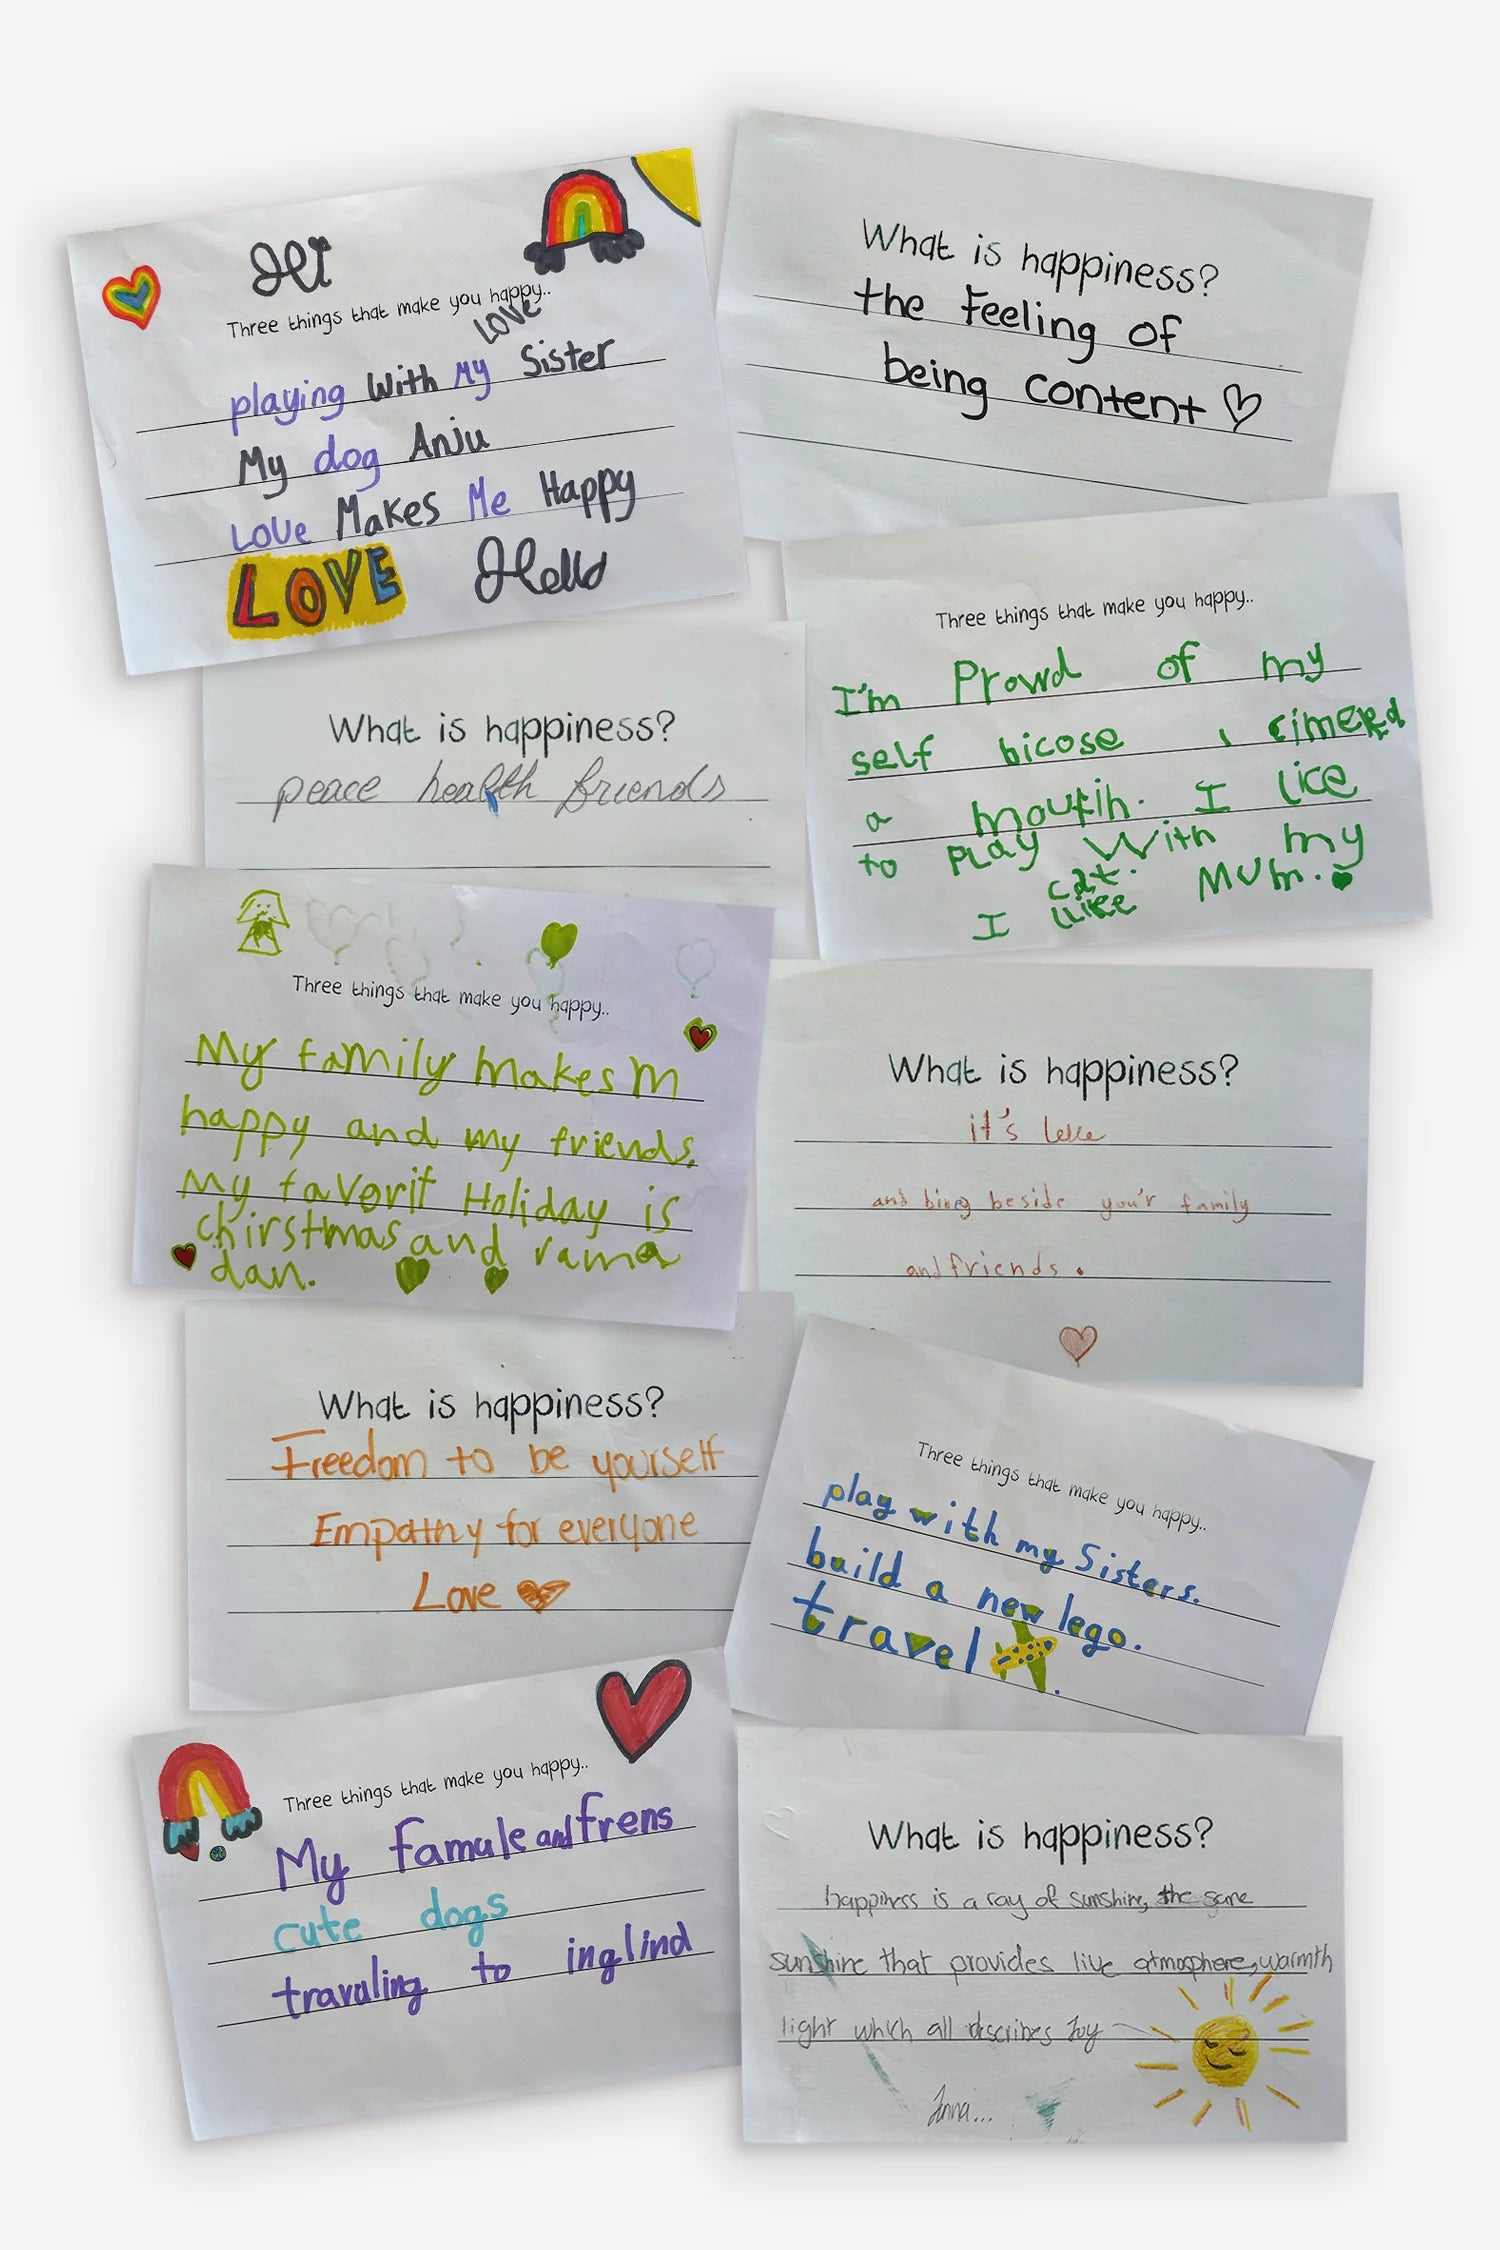 Hi
Three things that make you happy..
love
playing With My Sister
My dog Anju
Love Makes Me Happy
LOVE Hello
What is happiness?
the feeling of
being content
What is happiness?
peace health friends
Three things that make you happy..
I'm Prowd of my
self bicose i cimerd
a moutin. I lice
to PLAY With my
cat.
I like MUM.
Three things that make you happy..
My family makes m
happy and my friends.
My favorit Holiday is
chirstmas and rama
dan.
What is happiness?
it's
and bing beside you'r family
and friends.
What is happiness?
Freedom to be yourself
Empathy for everyone
Love
Three things that make you happy..
play with my Sisters.
build a new lego.
travel .
Three things that make you happy..
My famule and frens
cute dogs
travuling to inglind
What is happiness?
happiness is a ray of sunshine, the same
sunshine that provides live atmosphere, warmth
light which all describes Joy